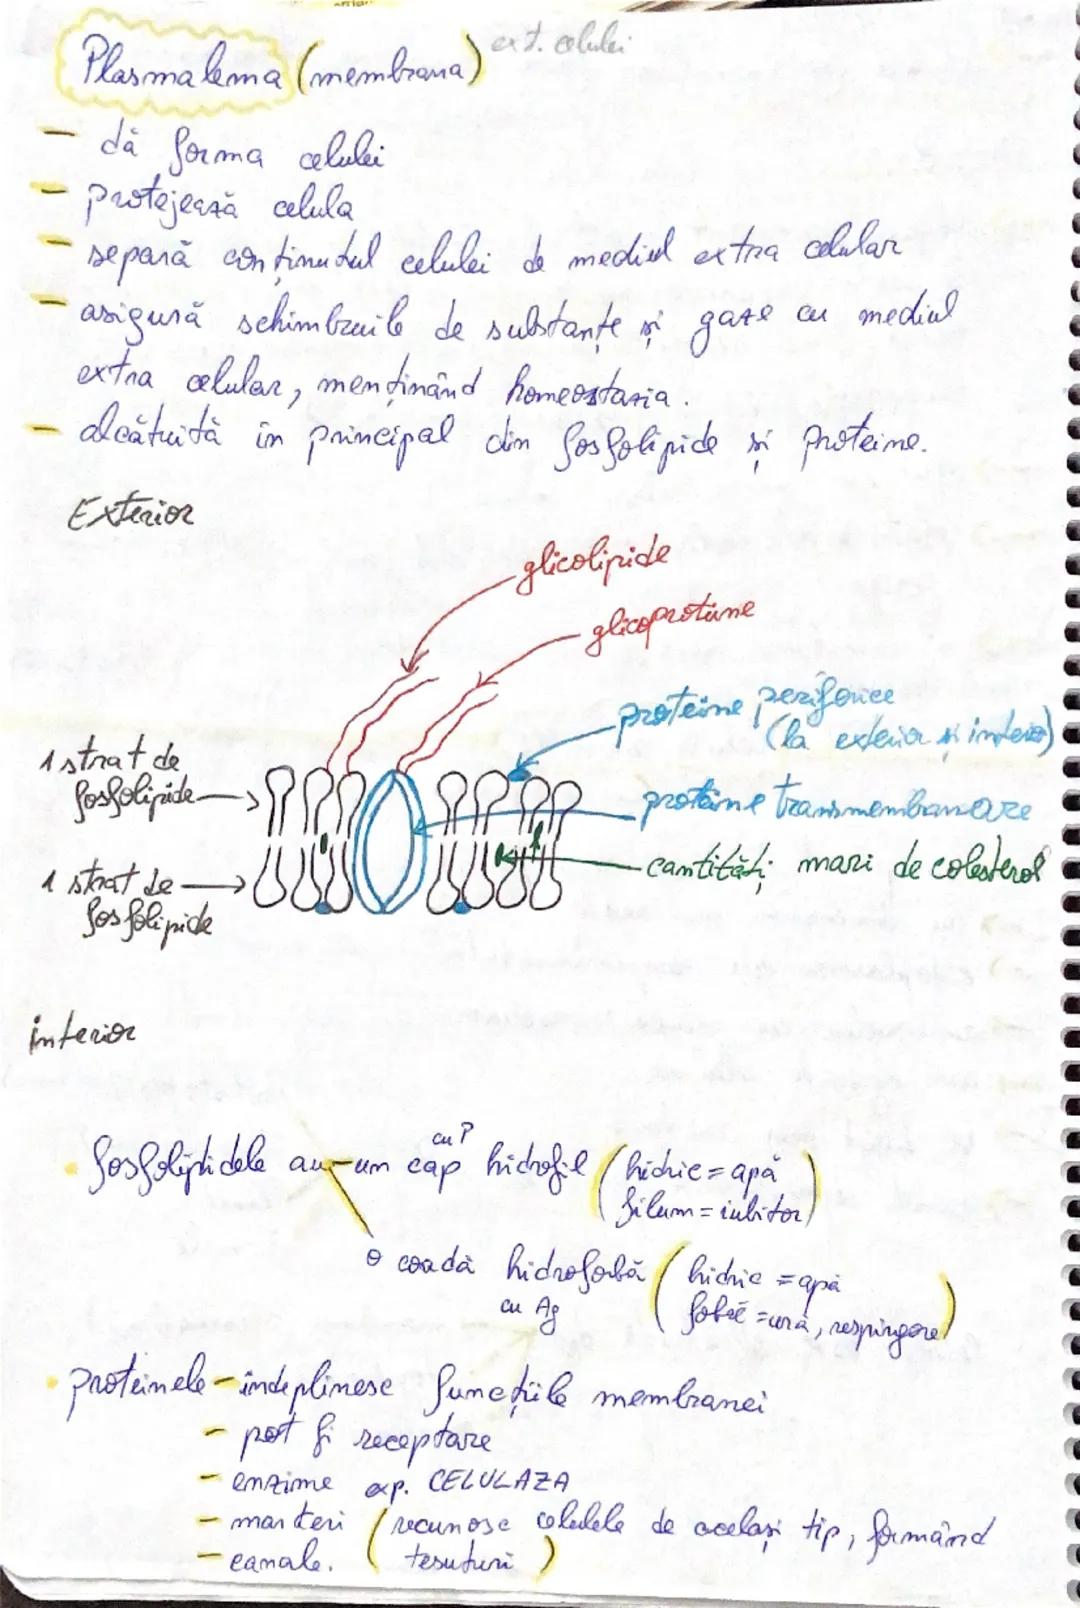 Plasmalema (membrana) ext. celulei
- dă forma celulei
- protejează celula
- separă conținutul celulei de mediul extra celular
- asigură schimburile de substanțe și gaze cu mediul
extra celular, menținând homeostazia.
- alcătuită în principal din fosfolipide și proteine.
Exterior
glicolipide
glicoproteine
proteine periferice
(la exterior și interior)
1 strat de
fosfolipide
proteine transmembranare
cantități mari de colesterol
1 strat de
fosfolipide
interior
cu P
• fosfolipidele au -un cap hidrofil (hidric = apă
filum = iubitor)
o coadă hidrofobă (hidric = apă
cu Ag fobie = ură, respingere)
• proteinele - îndeplinesc funcțiile membranei
- pot fi receptoare
- enzime exp. CELULAZA
- markeri (recunosc celulele de același tip, formând
- canale. țesuturi)